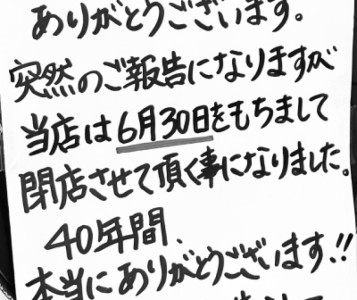 ありがとうございます。
突然のご報告になりますが
当店は6月30日をもちまして
閉店させて頂く事になりました。
40年間、
本当にありがとうございます!!